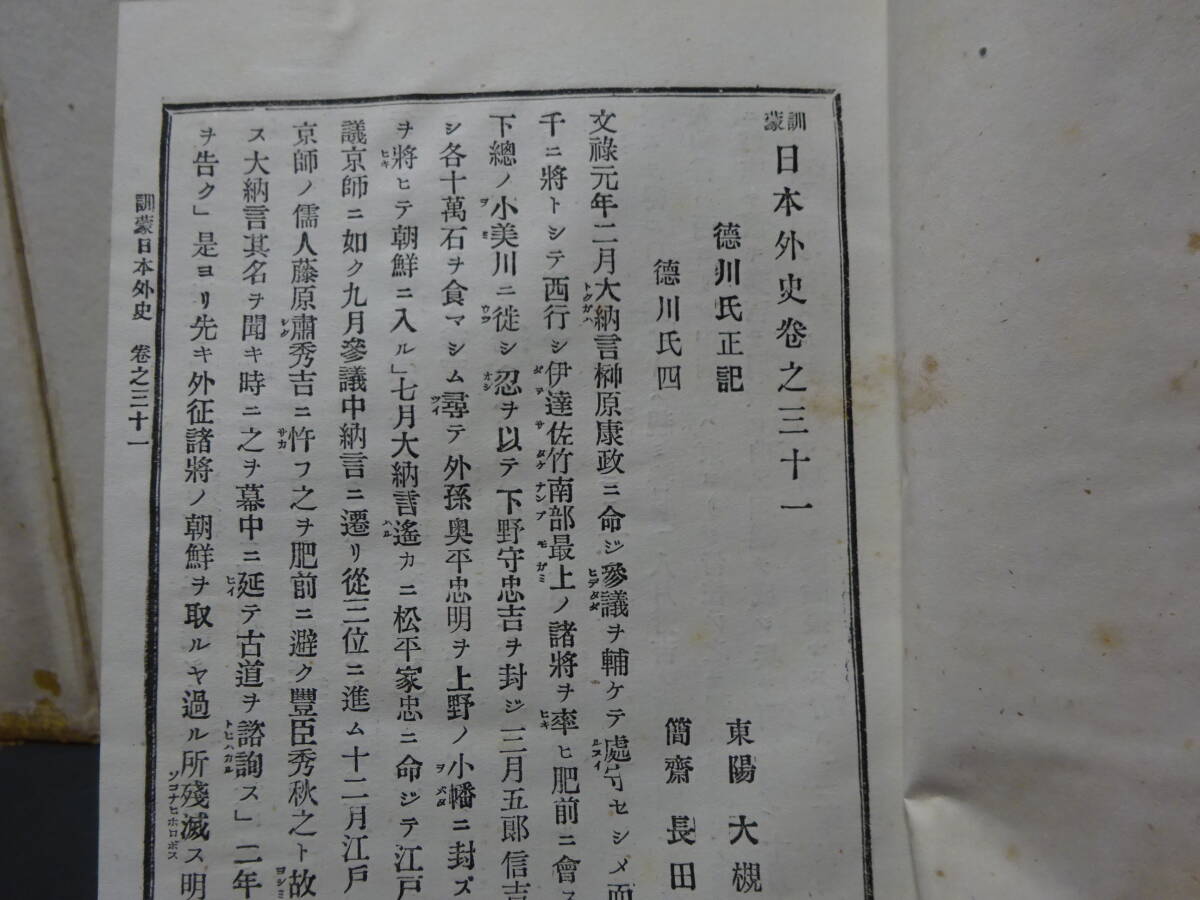 訓蒙日本外史卷之三十一
東陽 大槻
德川氏正記
簡齋 長田
德川氏四
文祿元年二月大納言榊原康政ニ命ジ參議ヲ輔ケテ處守セシメ而
千ニ將トシテ西行シ伊達佐竹南部最上ノ諸將ヲ率ヒ肥前ニ會ス
下總ノ小美川ニ徙シ忍ヲ以テ下野守忠吉ヲ封ジ三月五郞信吉
シ各十萬石ヲ食マシム尋テ外孫奧平忠明ヲ上野ノ小幡ニ封ズ
ヲ將ヒテ朝鮮ニ入ル」七月大納言遙カニ松平家忠ニ命ジテ江戶
議京師ニ如ク九月參議中納言ニ遷リ從三位ニ進ム十二月江戶
京師ノ儒人藤原肅秀吉ニ忤フ之ヲ肥前ニ避ク豐臣秀秋之ト故
ス大納言其名ヲ聞キ時ニ之ヲ幕中ニ延テ古道ヲ諮詢ス」二年
ヲ告ク」是ヨリ先キ外征諸將ノ朝鮮ヲ取ルヤ過ル所殘滅ス明
訓蒙日本外史 卷之三十一